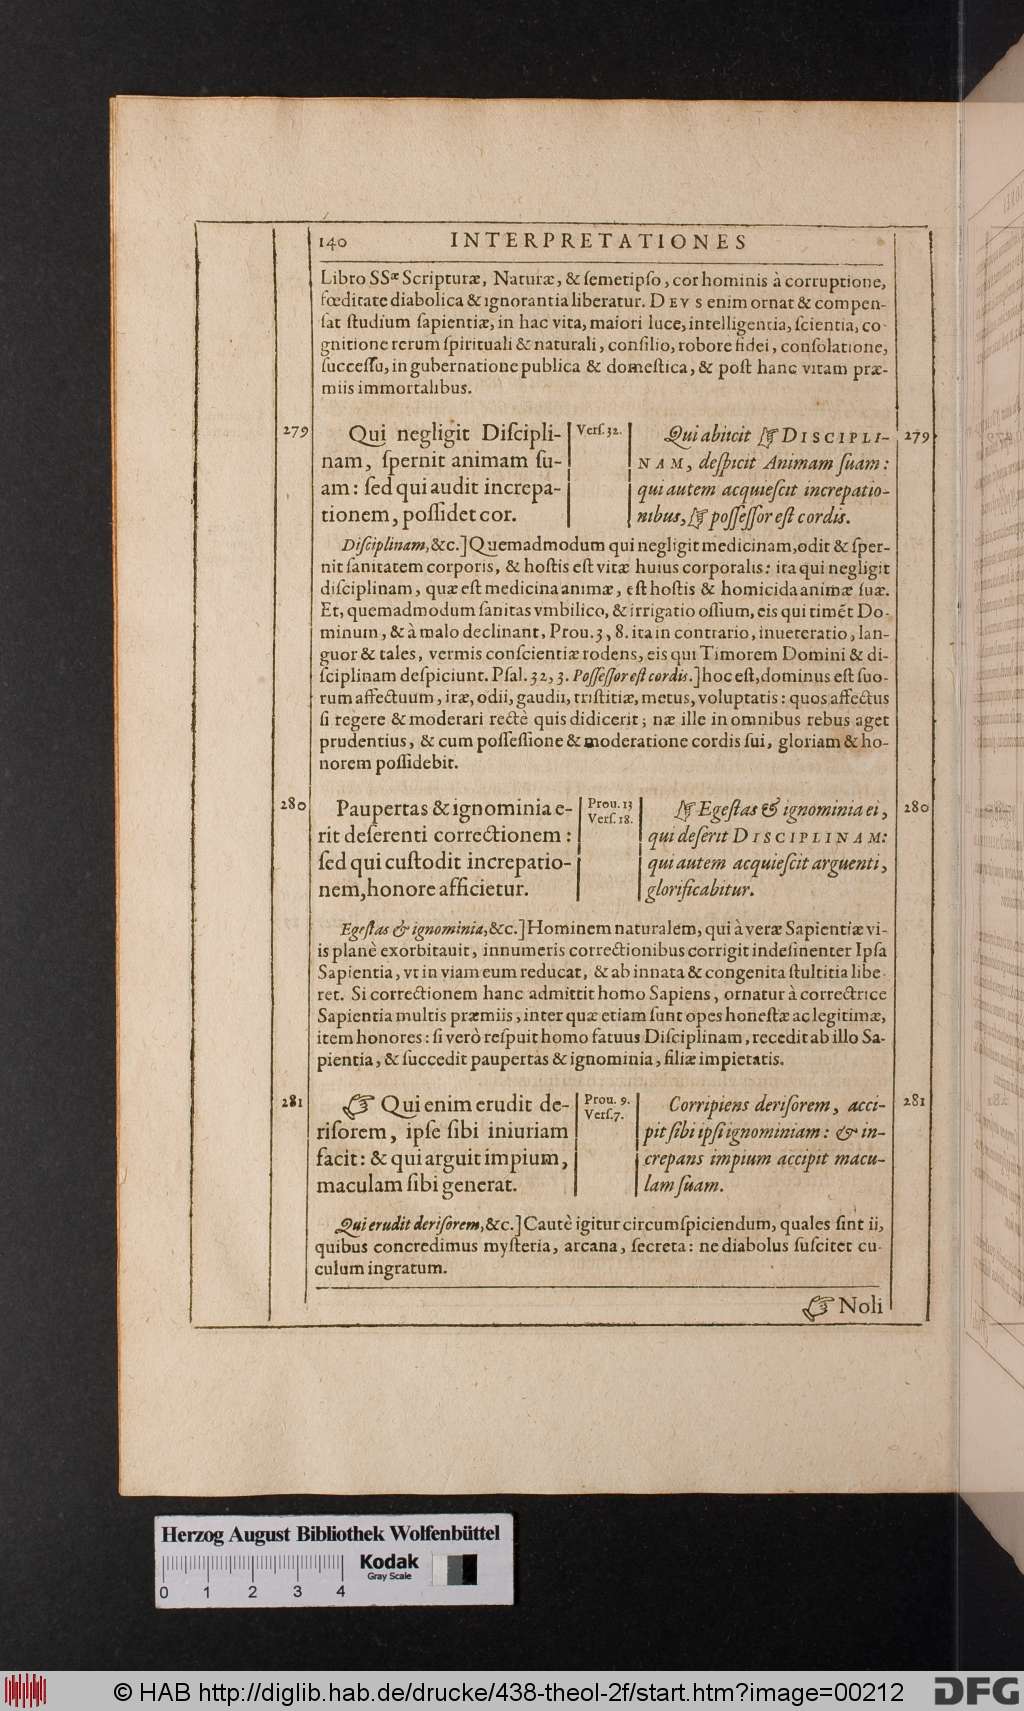 140 INTERPRETATIONES
Libro SSæ Scripturæ, Naturæ, & ſemetipſo, cor hominis à corruptione,
fœditate diabolica & ignorantia liberatur. DEVS enim ornat & compen-
ſat ſtudium ſapientiæ, in hac vita, maiori luce, intelligentia, ſcientia, co-
gnitione rerum ſpirituali & naturali, conſilio, robore fidei, conſolatione,
ſucceſſu, in gubernatione publica & domeſtica, & poſt hanc vitam præ-
miis immortalibus.
279
Qui negligit Diſcipli-
nam, ſpernit animam ſu-
am: ſed qui audit increpa-
tionem, poſſidet cor.
Verſ. 32.
Qui abiicit ☞ DISCIPLI-
NAM, deſpicit Animam ſuam:
qui autem acquieſcit increpatio-
nibus, ☞ poſſeſſor eſt cordis.
279
Diſciplinam, &c.] Quemadmodum qui negligit medicinam, odit & ſper-
nit ſanitatem corporis, & hoſtis eſt vitæ huius corporalis: ita qui negligit
diſciplinam, quæ eſt medicina animæ, eſt hoſtis & homicida animæ ſuæ.
Et, quemadmodum ſanitas vmbilico, & irrigatio oſſium, eis qui timẽt Do-
minum, & à malo declinant, Prou. 3, 8. ita in contrario, inueteratio, lan-
guor & tales, vermis conſcientiæ rodens, eis qui Timorem Domini & di-
ſciplinam deſpiciunt. Pſal. 32, 3. Poſſeſſor eſt cordis.] hoc eſt, dominus eſt ſuo-
rum affectuum, iræ, odii, gaudii, triſtitiæ, metus, voluptatis: quos affectus
ſi regere & moderari rectè quis didicerit; næ ille in omnibus rebus aget
prudentius, & cum poſſeſſione & moderatione cordis ſui, gloriam & ho-
norem poſſidebit.
280
Paupertas & ignominia e-
rit deſerenti correctionem:
ſed qui cuſtodit increpatio-
nem, honore afficietur.
Prou. 13
Verſ. 18.
☞ Egeſtas & ignominia ei,
qui deſerit DISCIPLINAM:
qui autem acquieſcit arguenti,
glorificabitur.
280
Egeſtas & ignominia, &c.] Hominem naturalem, qui à veræ Sapientiæ vi-
is planè exorbitauit, innumeris correctionibus corrigit indeſinenter Ipſa
Sapientia, vt in viam eum reducat, & ab innata & congenita ſtultitia libe-
ret. Si correctionem hanc admittit homo Sapiens, ornatur à correctrice
Sapientia multis præmiis, inter quæ etiam ſunt opes honeſtæ ac legitimæ,
item honores: ſi verò reſpuit homo fatuus Diſciplinam, recedit ab illo Sa-
pientia, & ſuccedit paupertas & ignominia, filiæ impietatis.
281
☞ Qui enim erudit de-
riſorem, ipſe ſibi iniuriam
facit: & qui arguit impium,
maculam ſibi generat.
Prou. 9.
Verſ. 7.
Corripiens deriſorem, acci-
pit ſibi ipſi ignominiam: & in-
crepans impium accipit macu-
lam ſuam.
281
Qui erudit deriſorem, &c.] Cautè igitur circumſpiciendum, quales ſint ii,
quibus concredimus myſteria, arcana, ſecreta: ne diabolus ſuſcitet cu-
culum ingratum.
☞ Noli
Herzog August Bibliothek Wolfenbüttel
0 1 2 3 4
Kodak
Gray Scale
© HAB http://diglib.hab.de/drucke/438-theol-2f/start.htm?image=00212
DFG